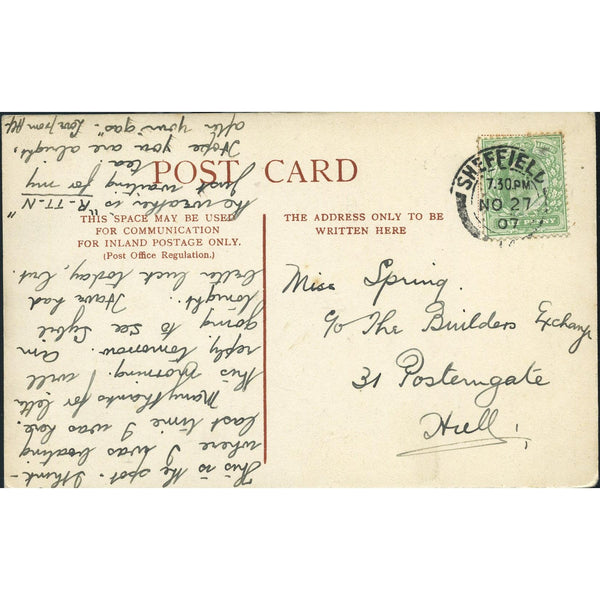 POST CARD
THIS SPACE MAY BE USED
FOR COMMUNICATION
FOR INLAND POSTAGE ONLY.
(Post Office Regulation.)
THE ADDRESS ONLY TO BE
WRITTEN HERE
SHEFFIELD
7.30PM
NO 27
07
Miss Spring.
c/o The Builders Exchange
31 Posterngate
Hull!
This is the spot. I think -
where I was boating
last time I was here.
Many thanks for lettr
this morning. I will
reply tomorrow. Am
going to see Sybil
tonight. Have had
better luck today, but
the weather is "R-TT-N"
Just waiting for my
tea!
Hope you are alright,
after your "gas". Love from Alf.